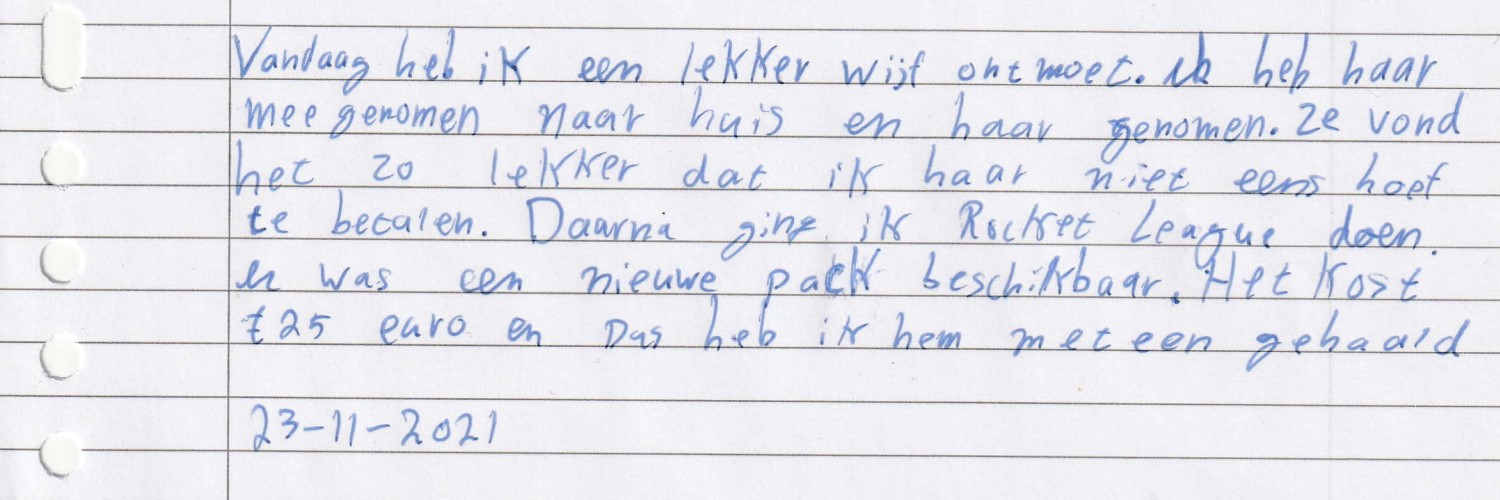 Vandaag heb ik een lekker wijf ontmoet. ik heb haar
mee genomen naar huis en haar genomen. Ze vond
het zo lekker dat ik haar niet eens hoef
te betalen. Daarna ging ik Rocket League doen.
er was een nieuwe pack beschikbaar. Het kost
€25 euro en Dus heb ik hem meteen gehaald
23-11-2021